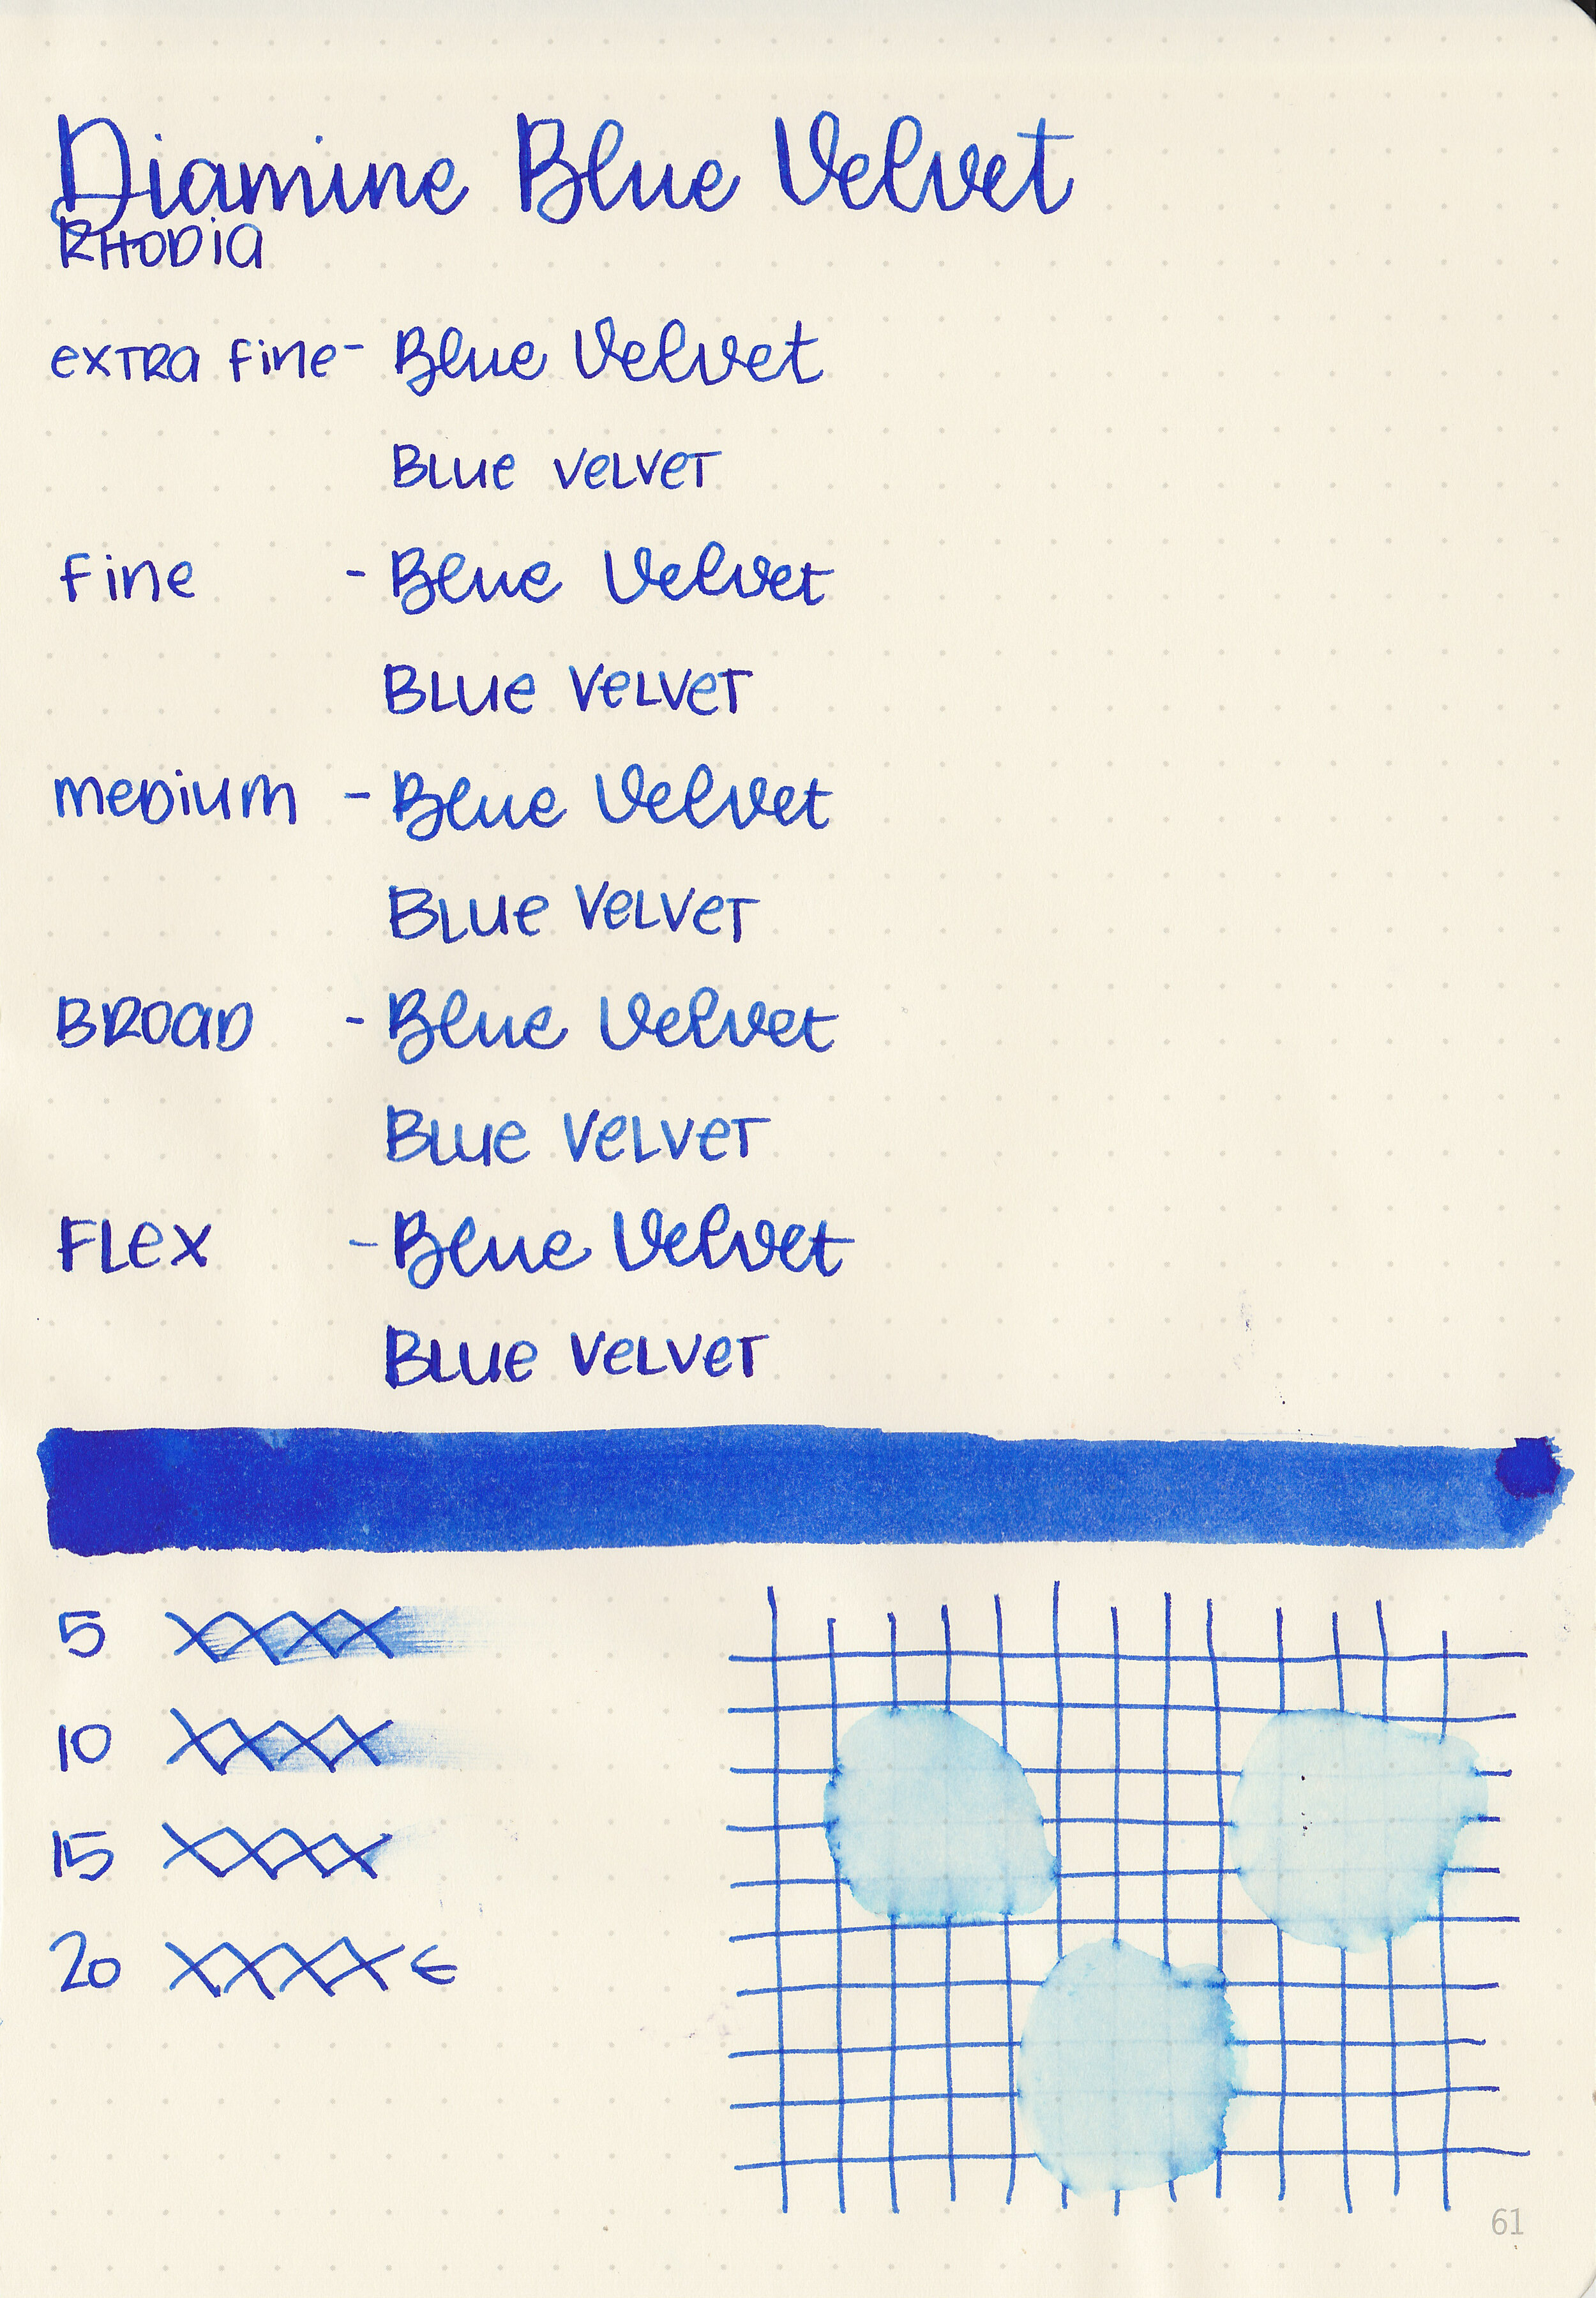 Diamine Blue Velvet
RHODIA
extra fine- Blue Velvet
Blue Velvet
fine - Blue Velvet
Blue Velvet
medium - Blue Velvet
Blue Velvet
BROAD - Blue Velvet
Blue Velvet
Flex - Blue Velvet
Blue Velvet
5 XXXX
10 XXXX
15 XXXX
20 XXXX ←
61